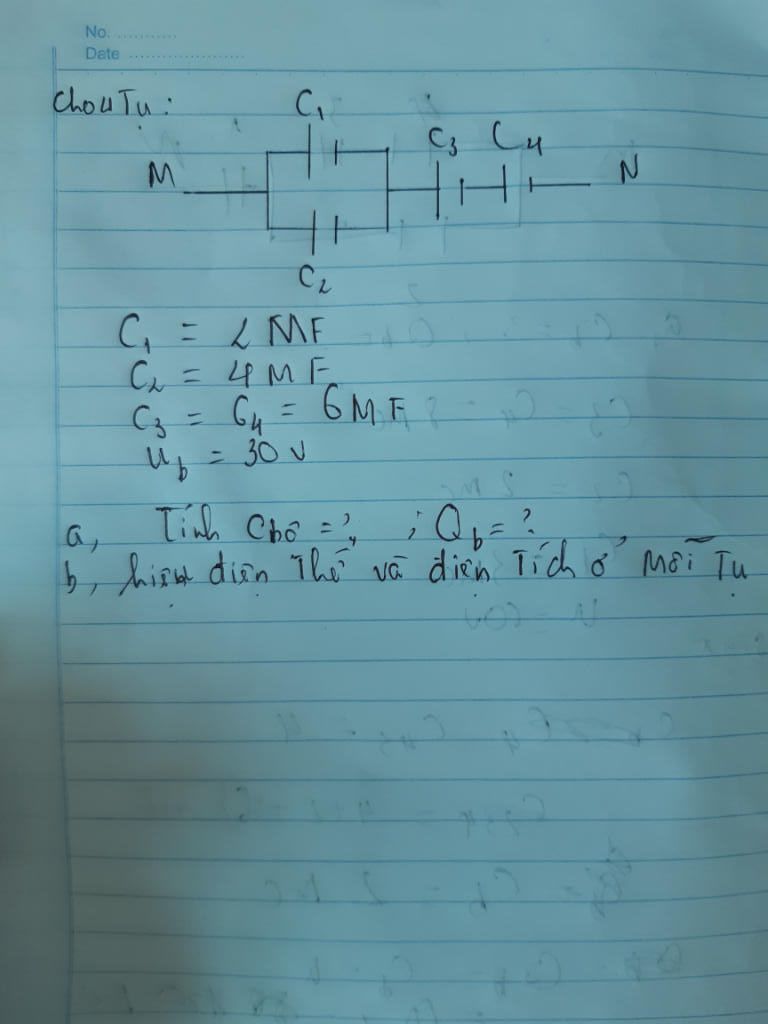 No. ............
Date .....................
Cho 4 Tụ :
C₁
C₃ C₄
M N
C₂
C₁ = 2 MF
C₂ = 4 MF
C₃ = C₄ = 6 MF
U_b = 30 V
a, Tính Cbô = ? ; Q_b = ?
b, hiệu điện Thế và điện Tích ở Mỗi Tụ